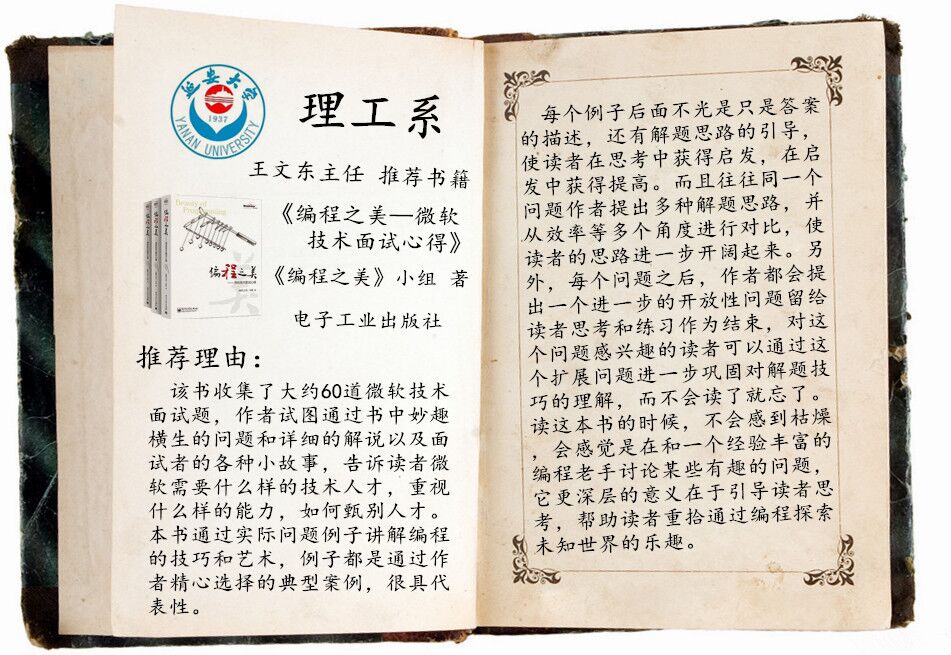 延安大学
1937
YANAN UNIVERSITY
理工系
王文东主任 推荐书籍
《编程之美—微软
技术面试心得》
《编程之美》小组 著
电子工业出版社
Beauty of
Programming
编程之美
编程之美
编程之美
编程之美
美
推荐理由：
该书收集了大约60道微软技术
面试题，作者试图通过书中妙趣
横生的问题和详细的解说以及面
试者的各种小故事，告诉读者微
软需要什么样的技术人才，重视
什么样的能力，如何甄别人才。
本书通过实际问题例子讲解编程
的技巧和艺术，例子都是通过作
者精心选择的典型案例，很具代
表性。
每个例子后面不光是只是答案
的描述，还有解题思路的引导，
使读者在思考中获得启发，在启
发中获得提高。而且往往同一个
问题作者提出多种解题思路，并
从效率等多个角度进行对比，使
读者的思路进一步开阔起来。另
外，每个问题之后，作者都会提
出一个进一步的开放性问题留给
读者思考和练习作为结束，对这
个问题感兴趣的读者可以通过这
个扩展问题进一步巩固对解题技
巧的理解，而不会读了就忘了。
读这本书的时候，不会感到枯燥
，会感觉是在和一个经验丰富的
编程老手讨论某些有趣的问题，
它更深层的意义在于引导读者思
考，帮助读者重拾通过编程探索
未知世界的乐趣。